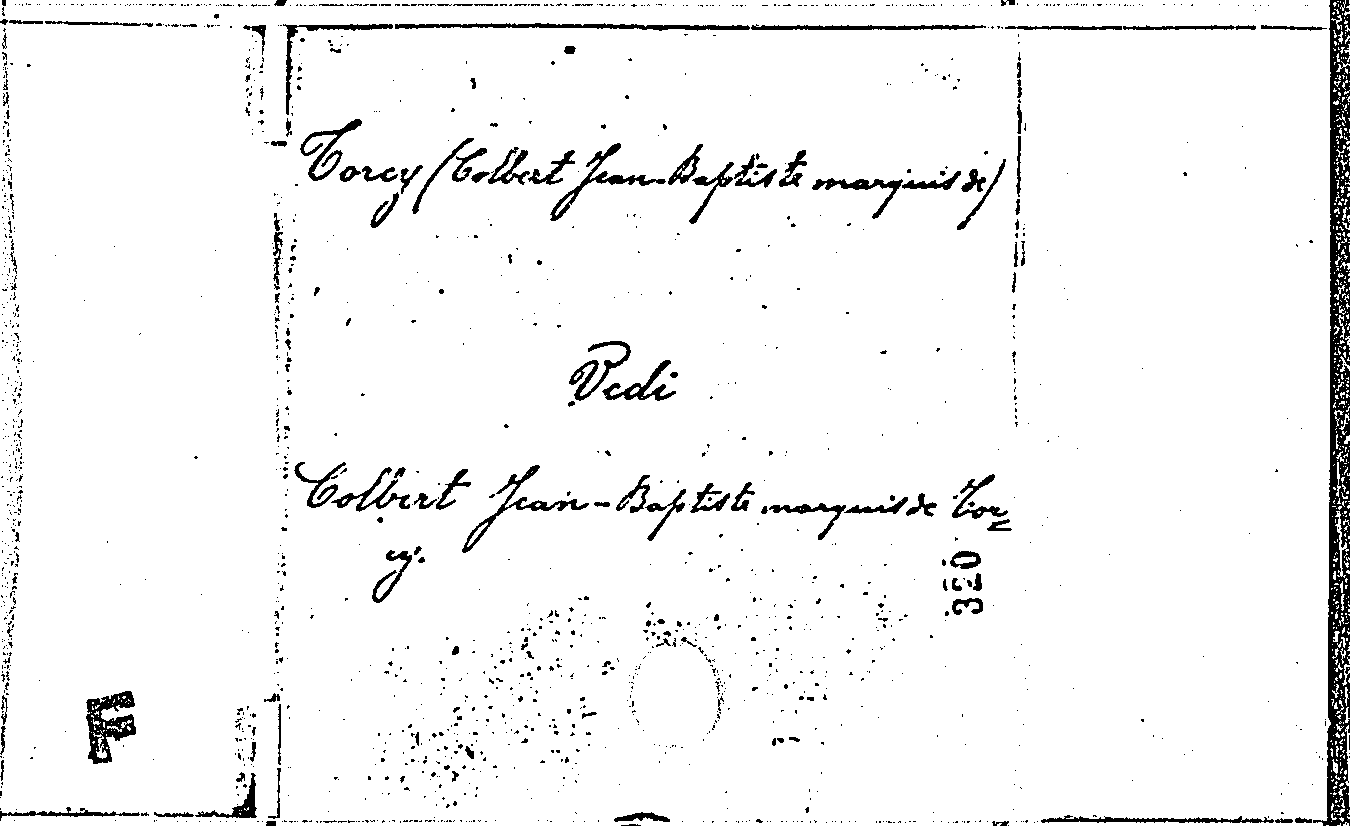 Torcy (Colbert Jean-Baptiste marquis de)
Vedi
Colbert Jean-Baptiste marquis de Tor=
cy.
320
F